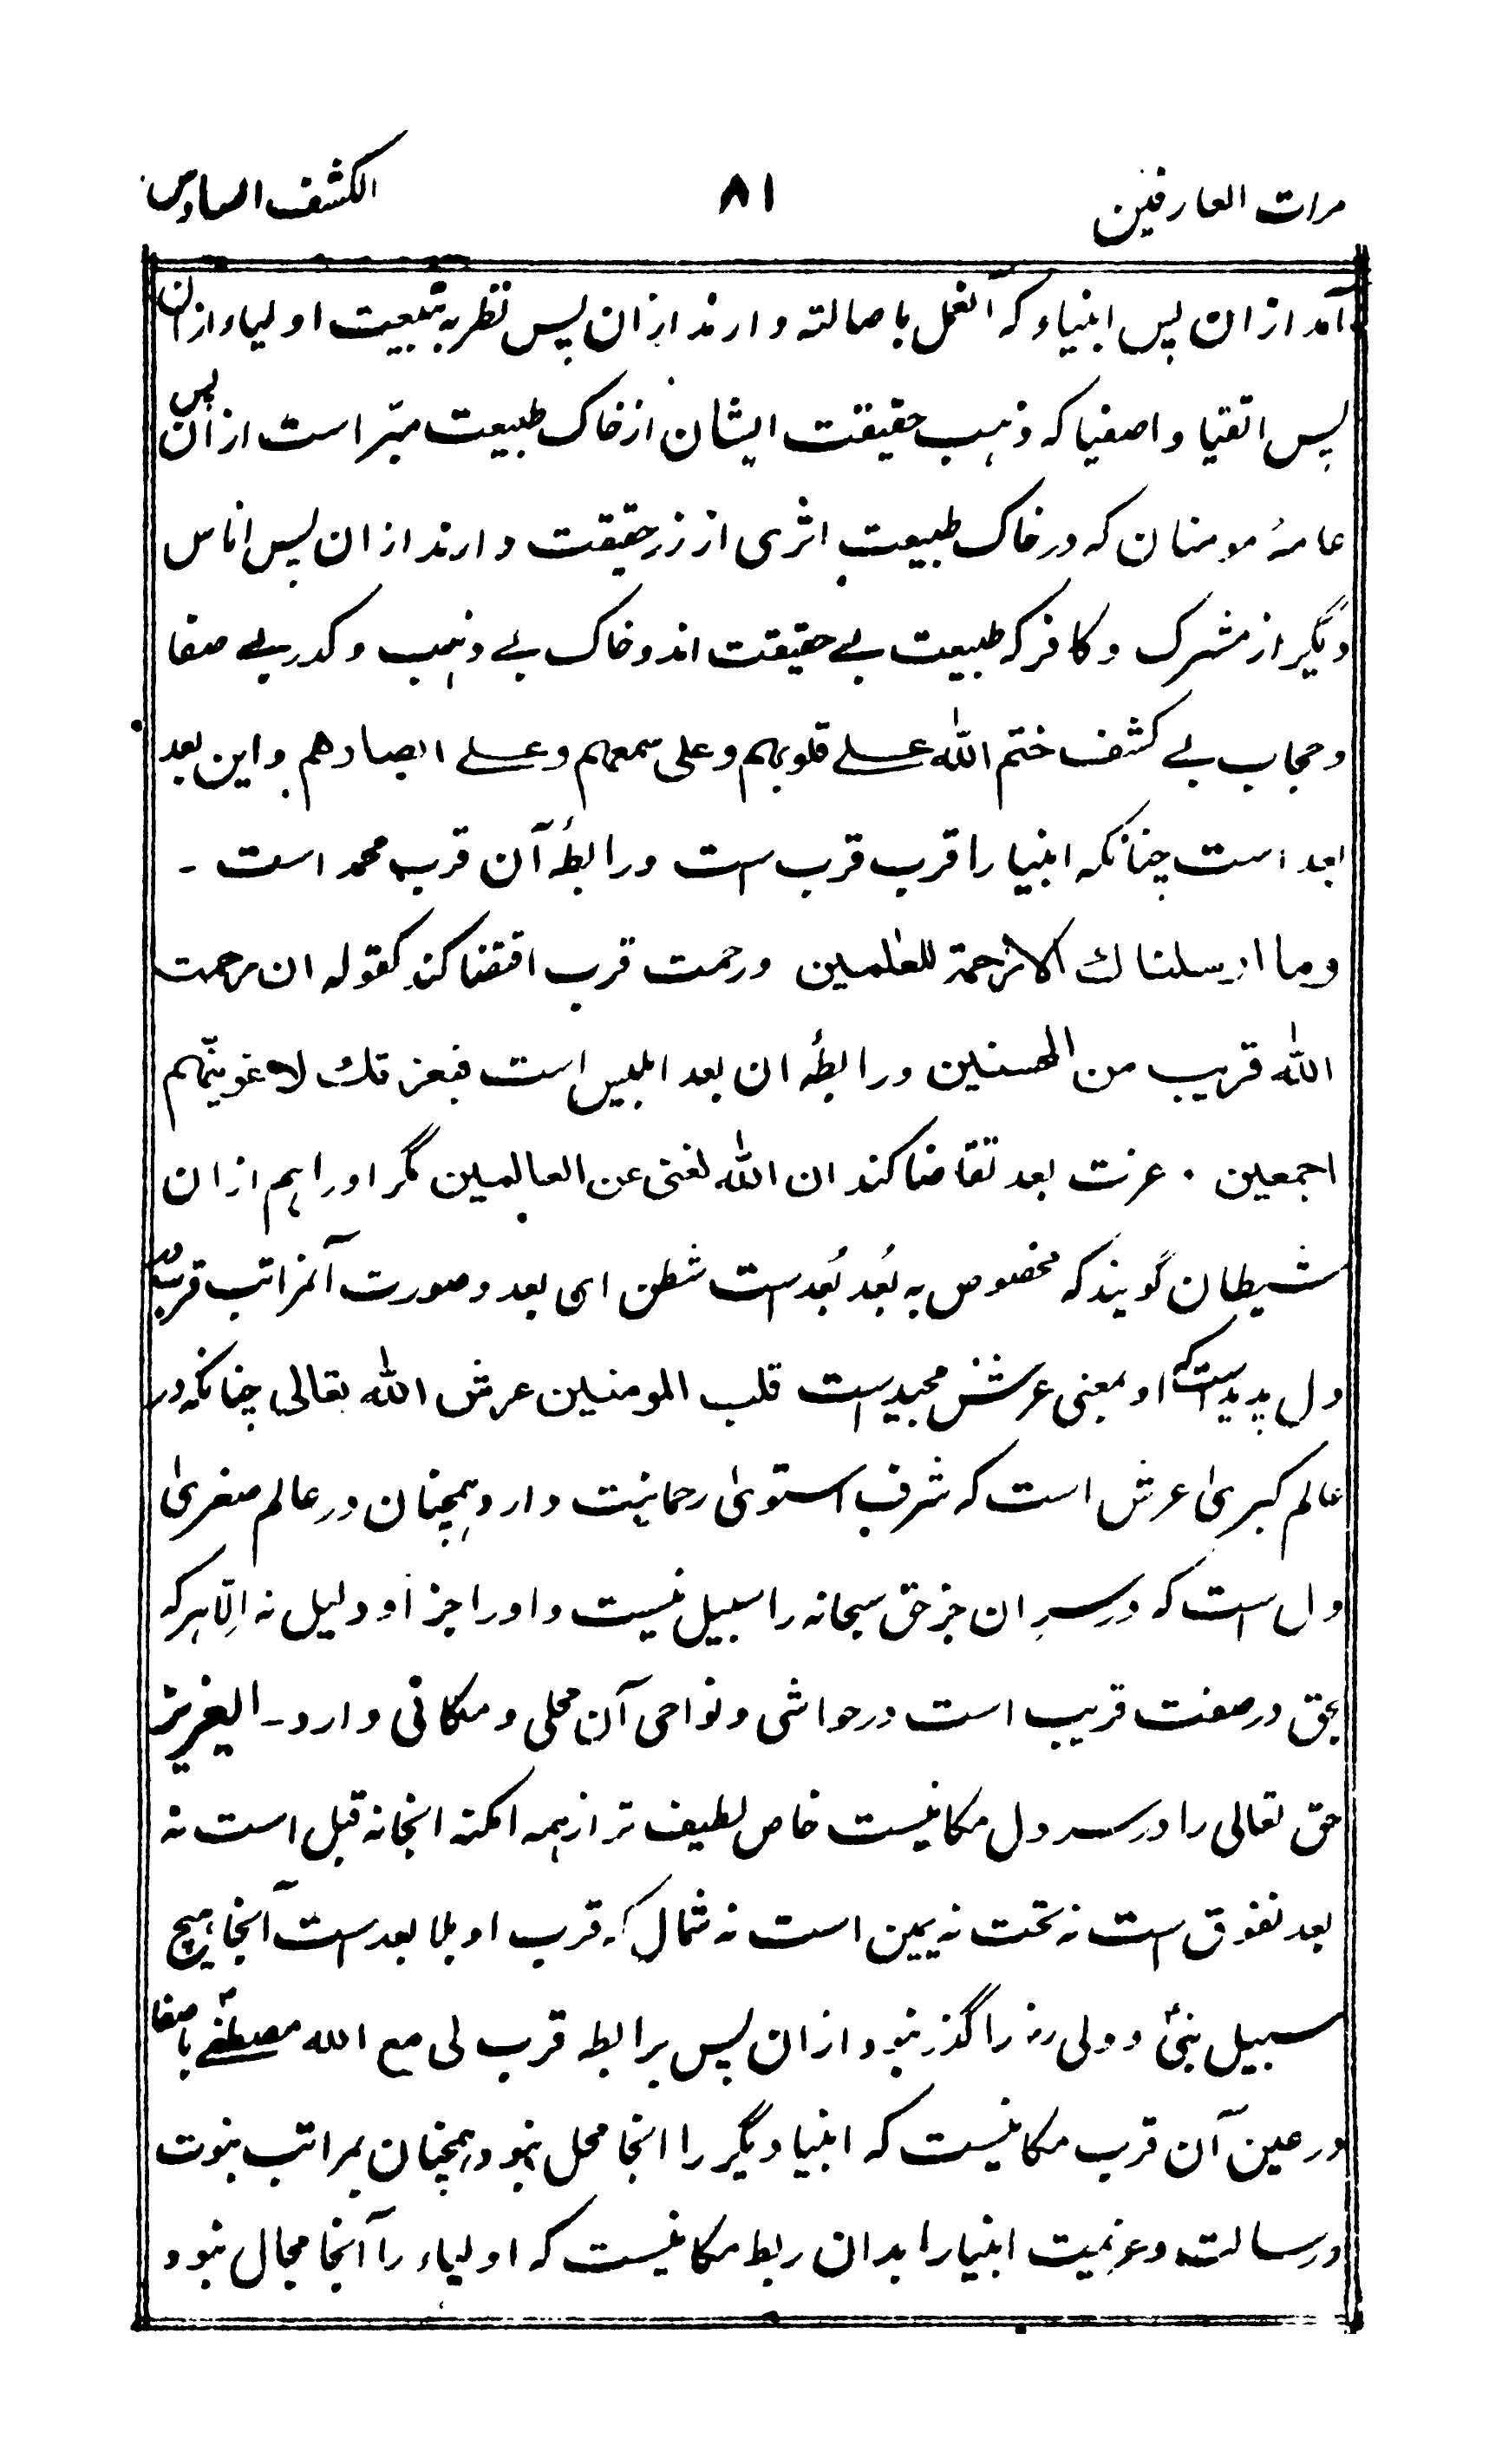 مرات العارفین ۸۱ الکشف السادس
آمد از ان پس انبیاء که آنعمل باصالته دارند از ان پس نظر به تبعیت اولیاء از ان
پس اتقیا و اصفیا که ذهب حقیقت ایشان از خاک طبیعت مبّرا است از ان پس
عامۂ مومنان که در خاک طبیعت اثری از زر حقیقت دارند از ان پس اناس
دیگر از مشرک و کافر که طبیعت بے حقیقت اند و خاک بے ذهب و کدر بے صفا
و حجاب بے کشف ختم الله علے قلوبهم و علی سمعهم و علے ابصارهم و این بعد
بعد است چنانکه انبیا را قرب قرب ست و رابطۂ آن قرب محمد است ۔
وما ارسلناك الا رحمة للعٰلمین و رحمت قرب اقتضا کند کقوله ان رحمت
الله قریب من المحسنین و رابطۂ ان بعد ابلیس است فبعزتك لاغوینّهم
اجمعین ۰ عزت بعد تقاضا کند ان الله لغنی عن العالمین گر او را هم از ان
شیطان گویند که مخصوص به بُعد بُعد ست شطن ای بعد و صورت آنمراتب قرب در
دل پدید ست که او بمعنی عرش مجید ست قلب المومنین عرش الله تعالی چنانکه در
عالم کبریٰ عرش است که شرف استویٰ رحمانیت دارد همچنان در عالم صغریٰ
دل ست که در سر ان جز حق سبحانه را سبیل نیست و او را جز او دلیل نه اِلّا هر که
بحق در صفت قریب است در حواشی و نواحی آن محلی و مکانی دارد ۔ العزیز
حق تعالی را در سر دل مکانیست خاص لطیف تر از همه امکنه انجا نه قبل است نه
بعد نفوق ست نه تحت نه یمین است نه شمال که قرب او بلا بعد ست آنجا هیچ
سبیل نبیؑ و ولی رض را گذر نبود از ان پس برابطه قرب لی مع الله مصطفےٰؐ با صفا
در عین آن قرب مکانیست که انبیا دیگر را انجا محل نبود همچنان بمراتب نبوت
و رسالت و عزمیت انبیا را بدان ربط مکانیست که اولیاء را آنجا مجال نبود